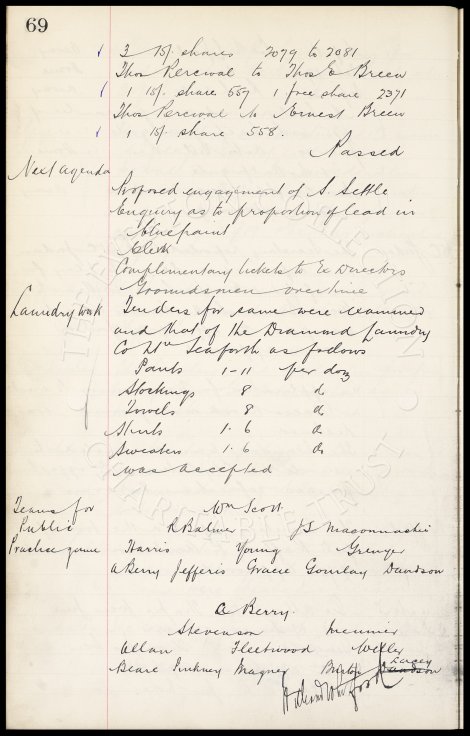 69
3 15/- shares 2079 to 2081
Thos Percival to Thos E Breen
1 15/- share 557 1 free share 2371
Thos Percival to Ernest Breen
1 15/- share 558.
Passed
Next agenda
Proposed engagement of S. Settle
Enquiry as to proportion of lead in
bluepaint
Clerk
Complimentary tickets to Ex Directors
Groundsmen overtime
Laundry work
Tenders for same were examined
and that of the Diamond Laundry
Co Ltd Seaforth as follows
Pants 1-11 per doz
Stockings 8 do
Towels 8 do
Shirts 1.6 do
Sweaters 1.6 do
was accepted
Teams for
Public
Practice game
Wm Scott
R Balmer J S Maconnachie
Harris Young Grenyer
A Berry Jefferis Gracie Gourlay Davidson
A Berry.
Stevenson Meunier
Allan Fleetwood Weller
Beare Pinkney Magner Burton Davidson Lacey
THE EVERTON COLLECTION
CHARITABLE TRUST